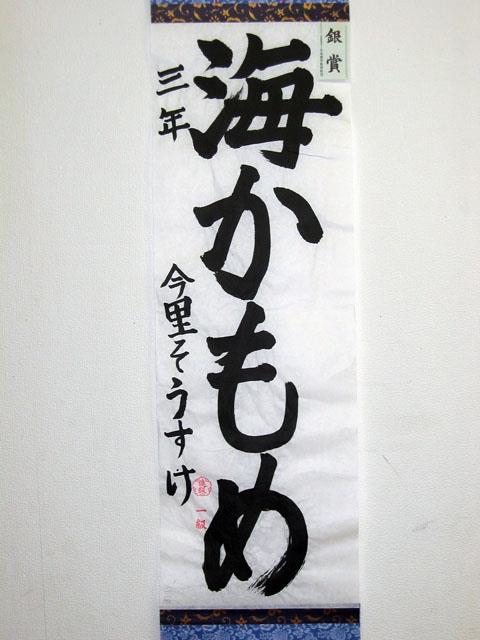 銀賞
海かもめ
三年
今里そうすけ
一級